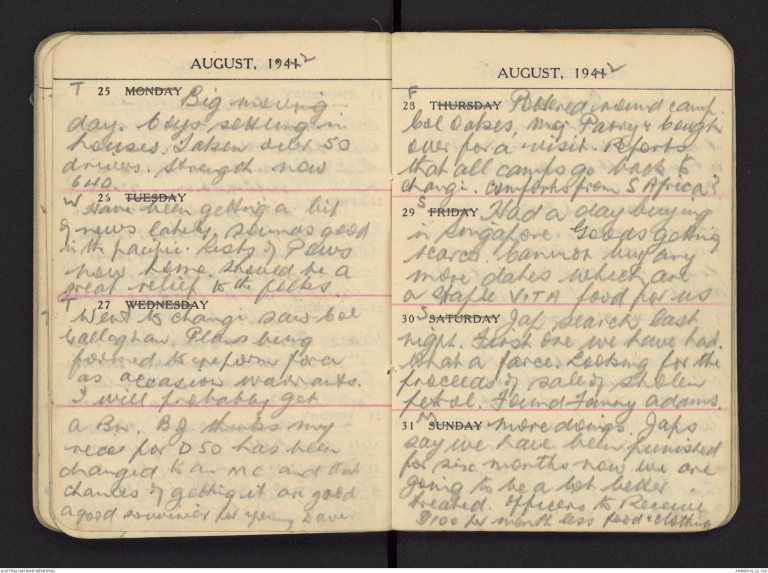 AUGUST, 1941 2
T 25 MONDAY Big moving
day. Boys settling in
houses. Taken over 50
drivers. Strength now
640.
W 26 TUESDAY
Have been getting a bit
of news lately. Sounds good
in the pacific. Lists of POWs
now home. Should be a
great relief to the folks
T 27 WEDNESDAY
Went to changi saw Col
Callaghan. Plans being
formed to reform for a
as occasion warrants.
I will probably get
a Bn. BJ thinks my
recc for DSO has been
changed to an MC and that
chances of getting it are good
a good souvenir for young Dave
AUGUST, 1941 2
F 28 THURSDAY Pottered round camp.
Col Oakes, Maj Parry & Gough
over for a visit. Reports
that all camps go back to
changi. Comforts from S Africa?
S 29 FRIDAY Had a day buying
in Singapore. Goods getting
scarce. Cannot buy any
more dates which are
a staple VITA food for us
S 30 SATURDAY Jap search last
night. First one we have had.
What a farce. Looking for the
proceeds of sale of stolen
petrol. Found Fanny adams.
M 31 SUNDAY More doings. Japs
say we have been punished
for six months now we are
going to be a lot better
treated. Officers to Receive
$100 per month less food & clothing
AUSTRALIAN WAR MEMORIAL